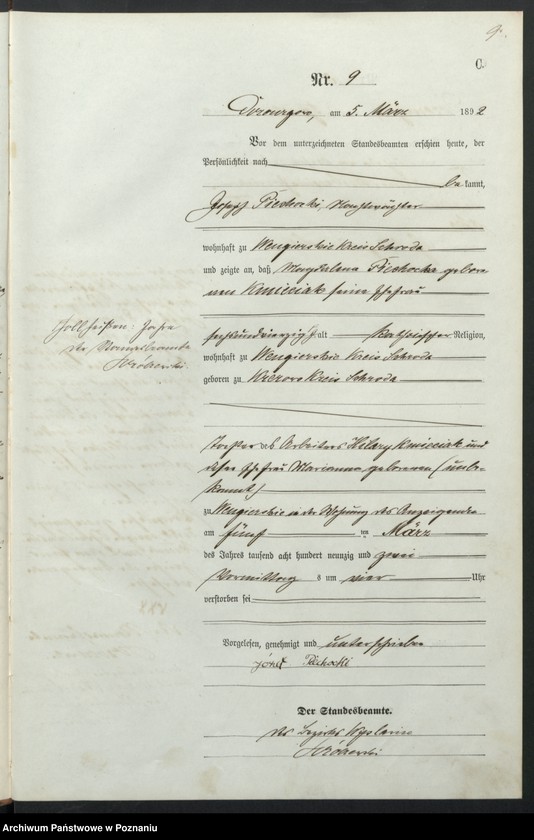 9.
C.
Nr. 9
am 5. März 1892
Vor dem unterzeichneten Standesbeamten erschien heute, der
Persönlichkeit nach
bekannt,
Joseph Piechocki, Nachtwächter
wohnhaft zu Wengierskie Kreis Schroda
und zeigte an, daß Magdalena Piechocka gebore
nen Kmieciak seine Ehefrau
Soll heißen: Jahre
Der Standesbeamte
sechsundvierzig J. alt katholischer Religion,
wohnhaft zu Wengierskie Kreis Schroda
geboren zu Kreis Schroda
Tochter des Arbeiters Hilary Kmieciak und
dessen Ehefrau Marianna geborenen (unbe-
kannt)
zu Wengierskie in der Wohnung des Anzeigenden
am fünf ten März
des Jahres tausend acht hundert neunzig und zwei
Vormittag s um vier Uhr
verstorben sei
Vorgelesen, genehmigt und unterschrieben
Józef Piechocki
Der Standesbeamte.
des Bezirks